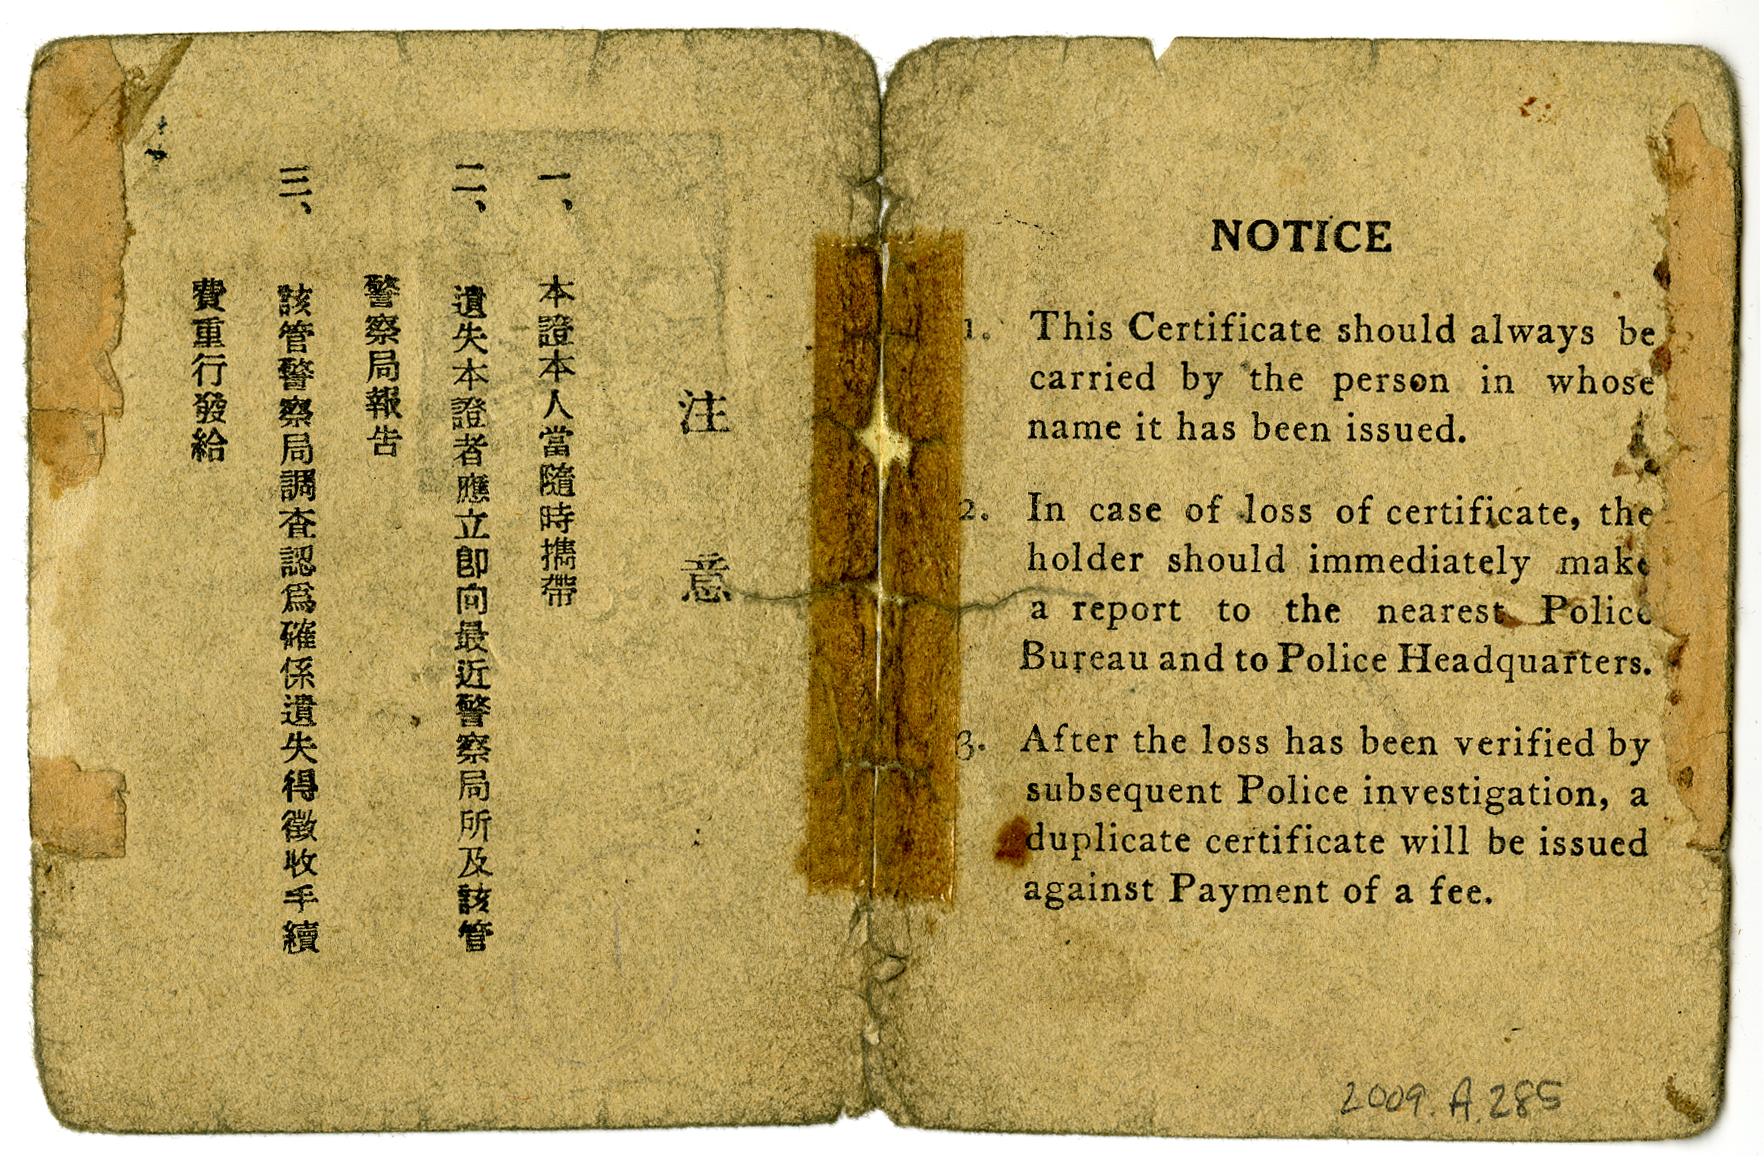 注意
一、本證本人當隨時攜帶
二、遺失本證者應立卽向最近警察局所及該管
警察局報告
三、該管警察局調查認爲確係遺失得徵收手續
費重行發給
NOTICE
1. This Certificate should always be
carried by the person in whose
name it has been issued.
2. In case of loss of certificate, the
holder should immediately make
a report to the nearest Police
Bureau and to Police Headquarters.
3. After the loss has been verified by
subsequent Police investigation, a
duplicate certificate will be issued
against Payment of a fee.
2009.A.285